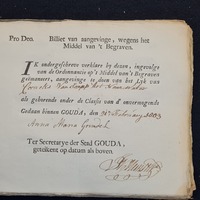 Pro Deo. Billet van aangevinge, wegens het
Middel van 't Begraven.
IK ondergeschreve verklare by dezen, ingevolge
van de Ordonnantie op 't Middel van 't Begraven
geëmaneert, aangevinge te doen van het Lyk van
als gehorende onder de Classis van d' onvermogende
Gedaan binnen GOUDA, den February 1803
Anna Maria
Ter Secretarye der Stad GOUDA,
getekent op datum als boven.